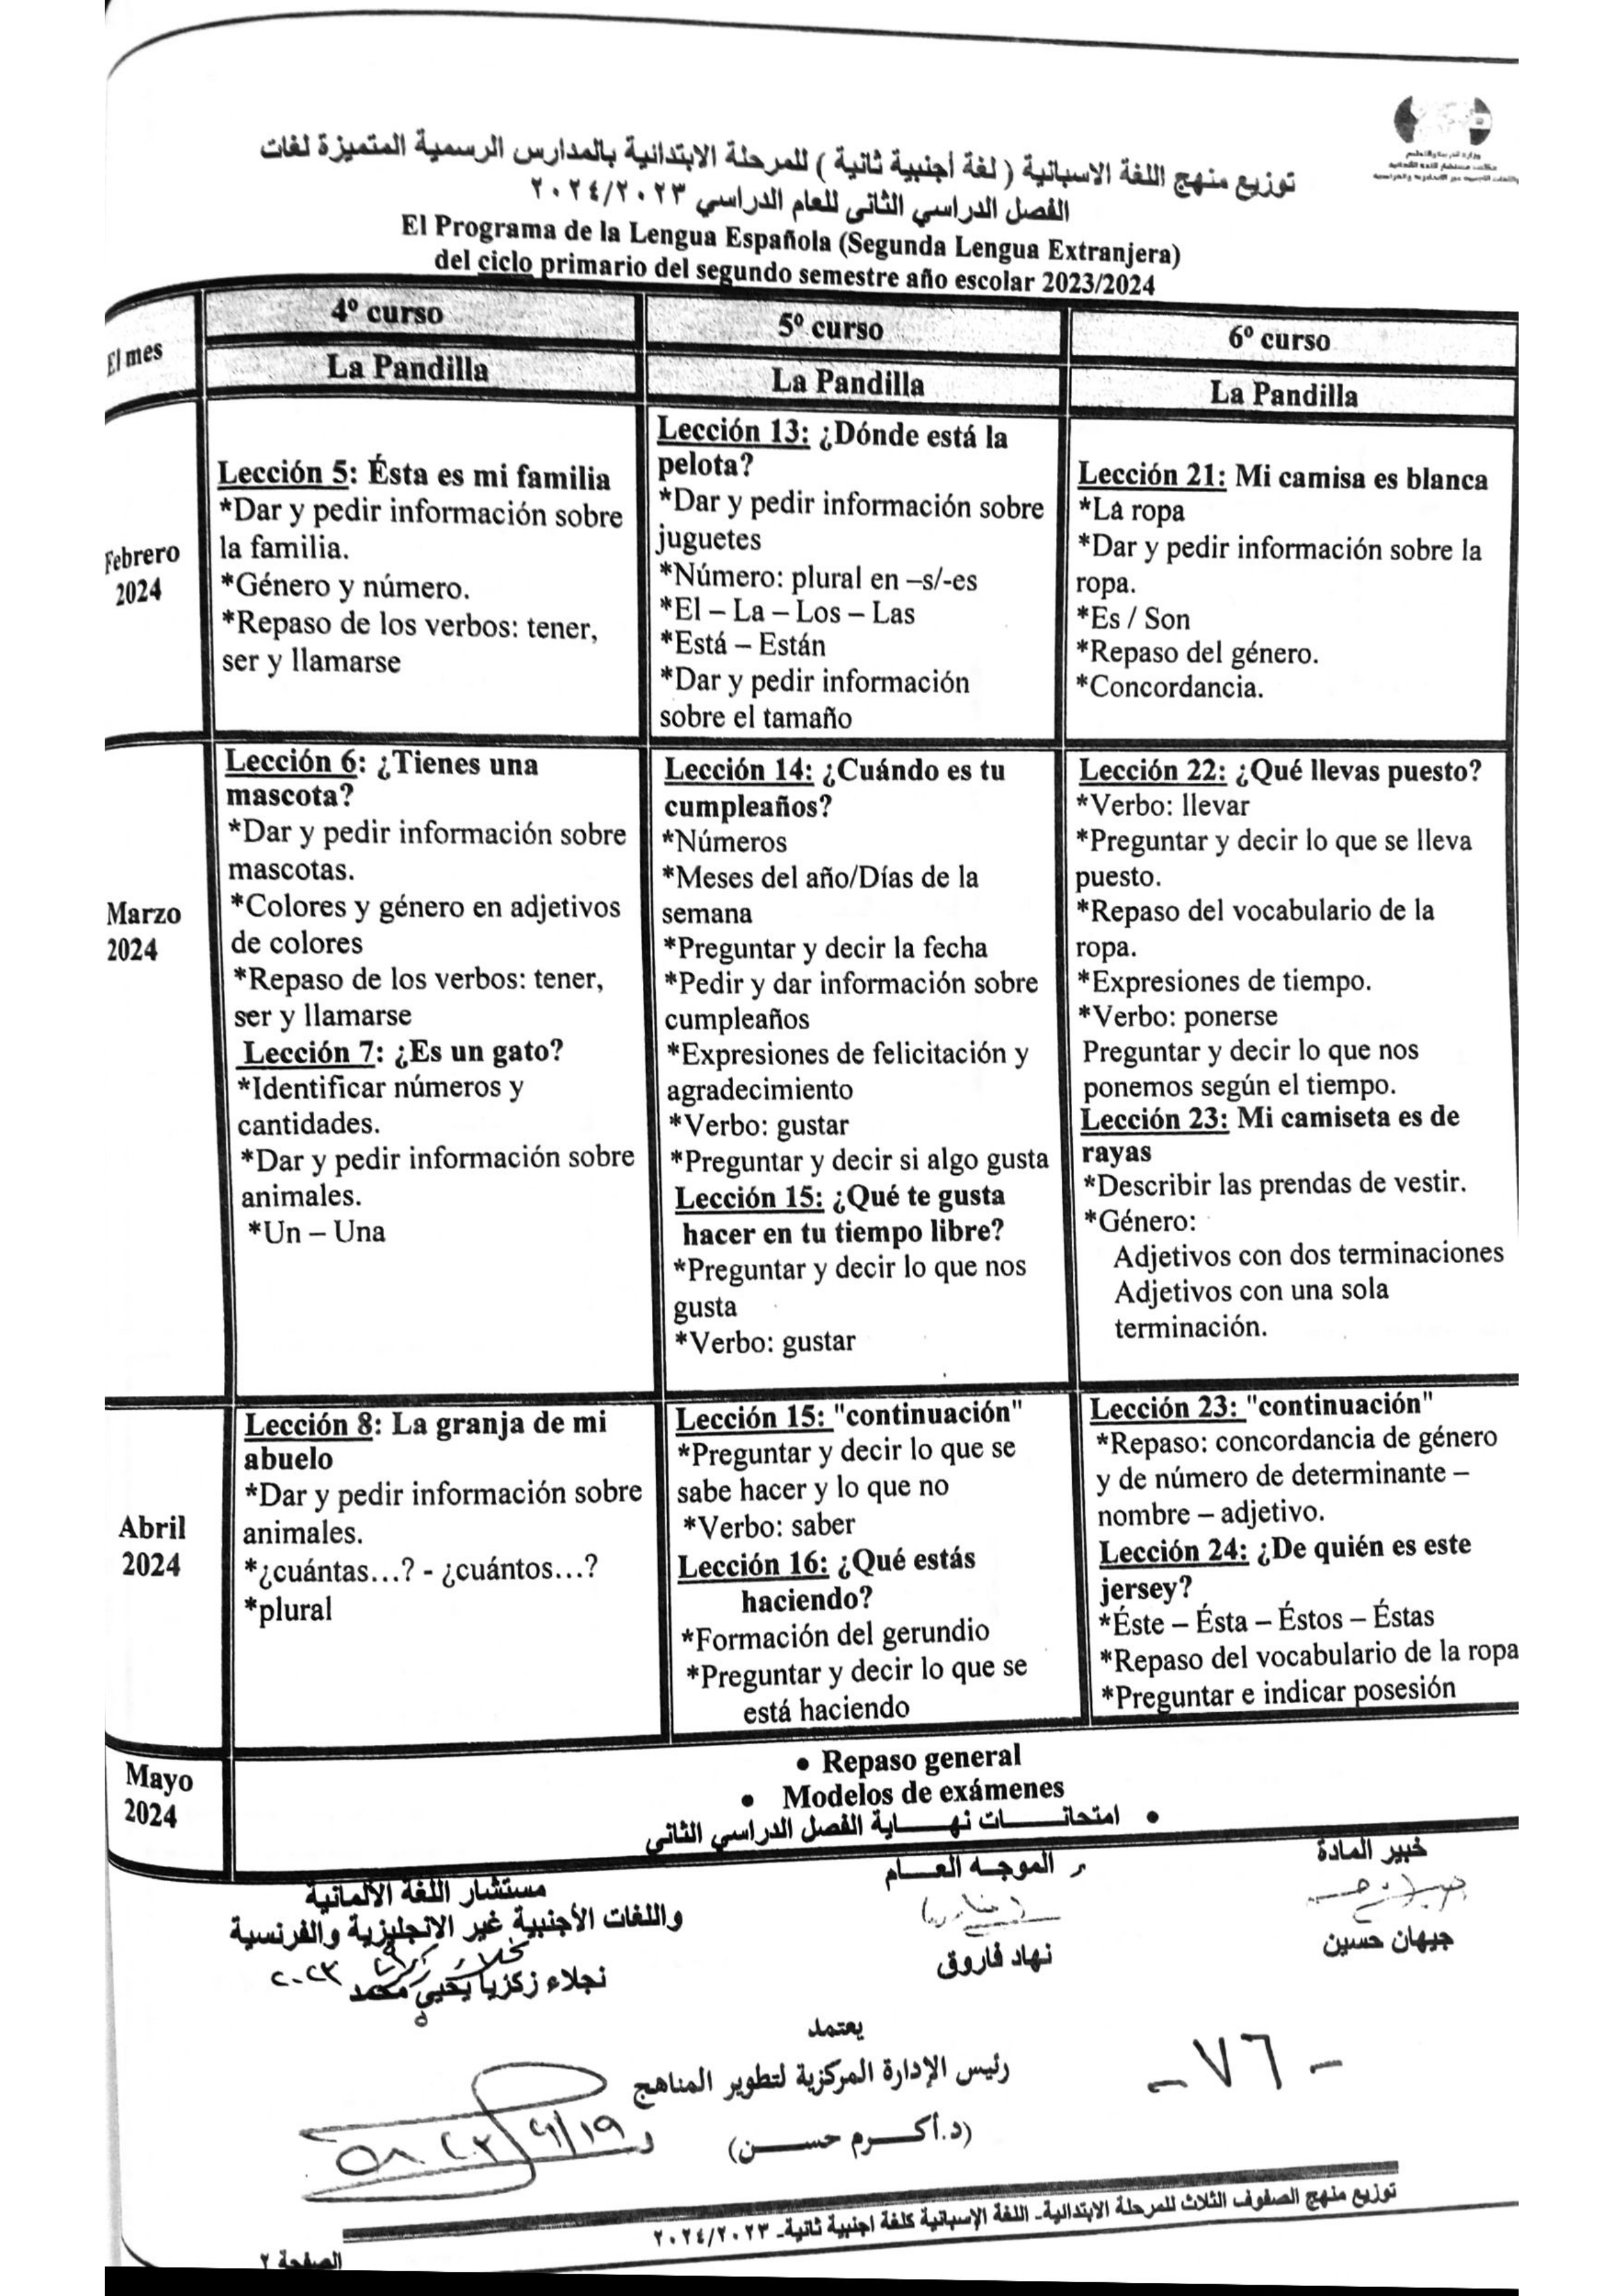 وزارة التربية والتعليم
توزيع منهج اللغة الاسبانية ( لغة أجنبية ثانية ) للمرحلة الابتدائية بالمدارس الرسمية المتميزة لغات
الفصل الدراسي الثانى للعام الدراسي ٢٠٢٤/٢٠٢٣
El Programa de la Lengua Española (Segunda Lengua Extranjera)
del ciclo primario del segundo semestre año escolar 2023/2024
El mes
4º curso
5º curso
6º curso
La Pandilla
La Pandilla
La Pandilla
Febrero
2024
Lección 5: Ésta es mi familia
*Dar y pedir información sobre
la familia.
*Género y número.
*Repaso de los verbos: tener,
ser y llamarse
Lección 13: ¿Dónde está la
pelota?
*Dar y pedir información sobre
juguetes
*Número: plural en –s/-es
*El – La – Los – Las
*Está – Están
*Dar y pedir información
sobre el tamaño
Lección 21: Mi camisa es blanca
*La ropa
*Dar y pedir información sobre la
ropa.
*Es / Son
*Repaso del género.
*Concordancia.
Marzo
2024
Lección 6: ¿Tienes una
mascota?
*Dar y pedir información sobre
mascotas.
*Colores y género en adjetivos
de colores
*Repaso de los verbos: tener,
ser y llamarse
Lección 7: ¿Es un gato?
*Identificar números y
cantidades.
*Dar y pedir información sobre
animales.
*Un – Una
Lección 14: ¿Cuándo es tu
cumpleaños?
*Números
*Meses del año/Días de la
semana
*Preguntar y decir la fecha
*Pedir y dar información sobre
cumpleaños
*Expresiones de felicitación y
agradecimiento
*Verbo: gustar
*Preguntar y decir si algo gusta
Lección 15: ¿Qué te gusta
hacer en tu tiempo libre?
*Preguntar y decir lo que nos
gusta
*Verbo: gustar
Lección 22: ¿Qué llevas puesto?
*Verbo: llevar
*Preguntar y decir lo que se lleva
puesto.
*Repaso del vocabulario de la
ropa.
*Expresiones de tiempo.
*Verbo: ponerse
Preguntar y decir lo que nos
ponemos según el tiempo.
Lección 23: Mi camiseta es de
rayas
*Describir las prendas de vestir.
*Género:
Adjetivos con dos terminaciones
Adjetivos con una sola
terminación.
Abril
2024
Lección 8: La granja de mi
abuelo
*Dar y pedir información sobre
animales.
*¿cuántas...? - ¿cuántos...?
*plural
Lección 15: "continuación"
*Preguntar y decir lo que se
sabe hacer y lo que no
*Verbo: saber
Lección 16: ¿Qué estás
haciendo?
*Formación del gerundio
*Preguntar y decir lo que se
está haciendo
Lección 23: "continuación"
*Repaso: concordancia de género
y de número de determinante –
nombre – adjetivo.
Lección 24: ¿De quién es este
jersey?
*Éste – Ésta – Éstos – Éstas
*Repaso del vocabulario de la ropa
*Preguntar e indicar posesión
Mayo
2024
• Repaso general
• Modelos de exámenes
• امتحانـــــات نهـــــاية الفصل الدراسي الثاني
خبير المادة
جيهان حسين
الموجـه العـــام
نهاد فاروق
مستشار اللغة الألمانية
واللغات الأجنبية غير الإنجليزية والفرنسية
نجلاء زكريا يحيى محمد
يعتمد
رئيس الإدارة المركزية لتطوير المناهج
(د.أكـــرم حســـن)
- ٧٦ -
توزيع منهج الصفوف الثلاث للمرحلة الابتدائية- اللغة الإسبانية كلغة اجنبية ثانية- ٢٠٢٤/٢٠٢٣
الصفحة ٢